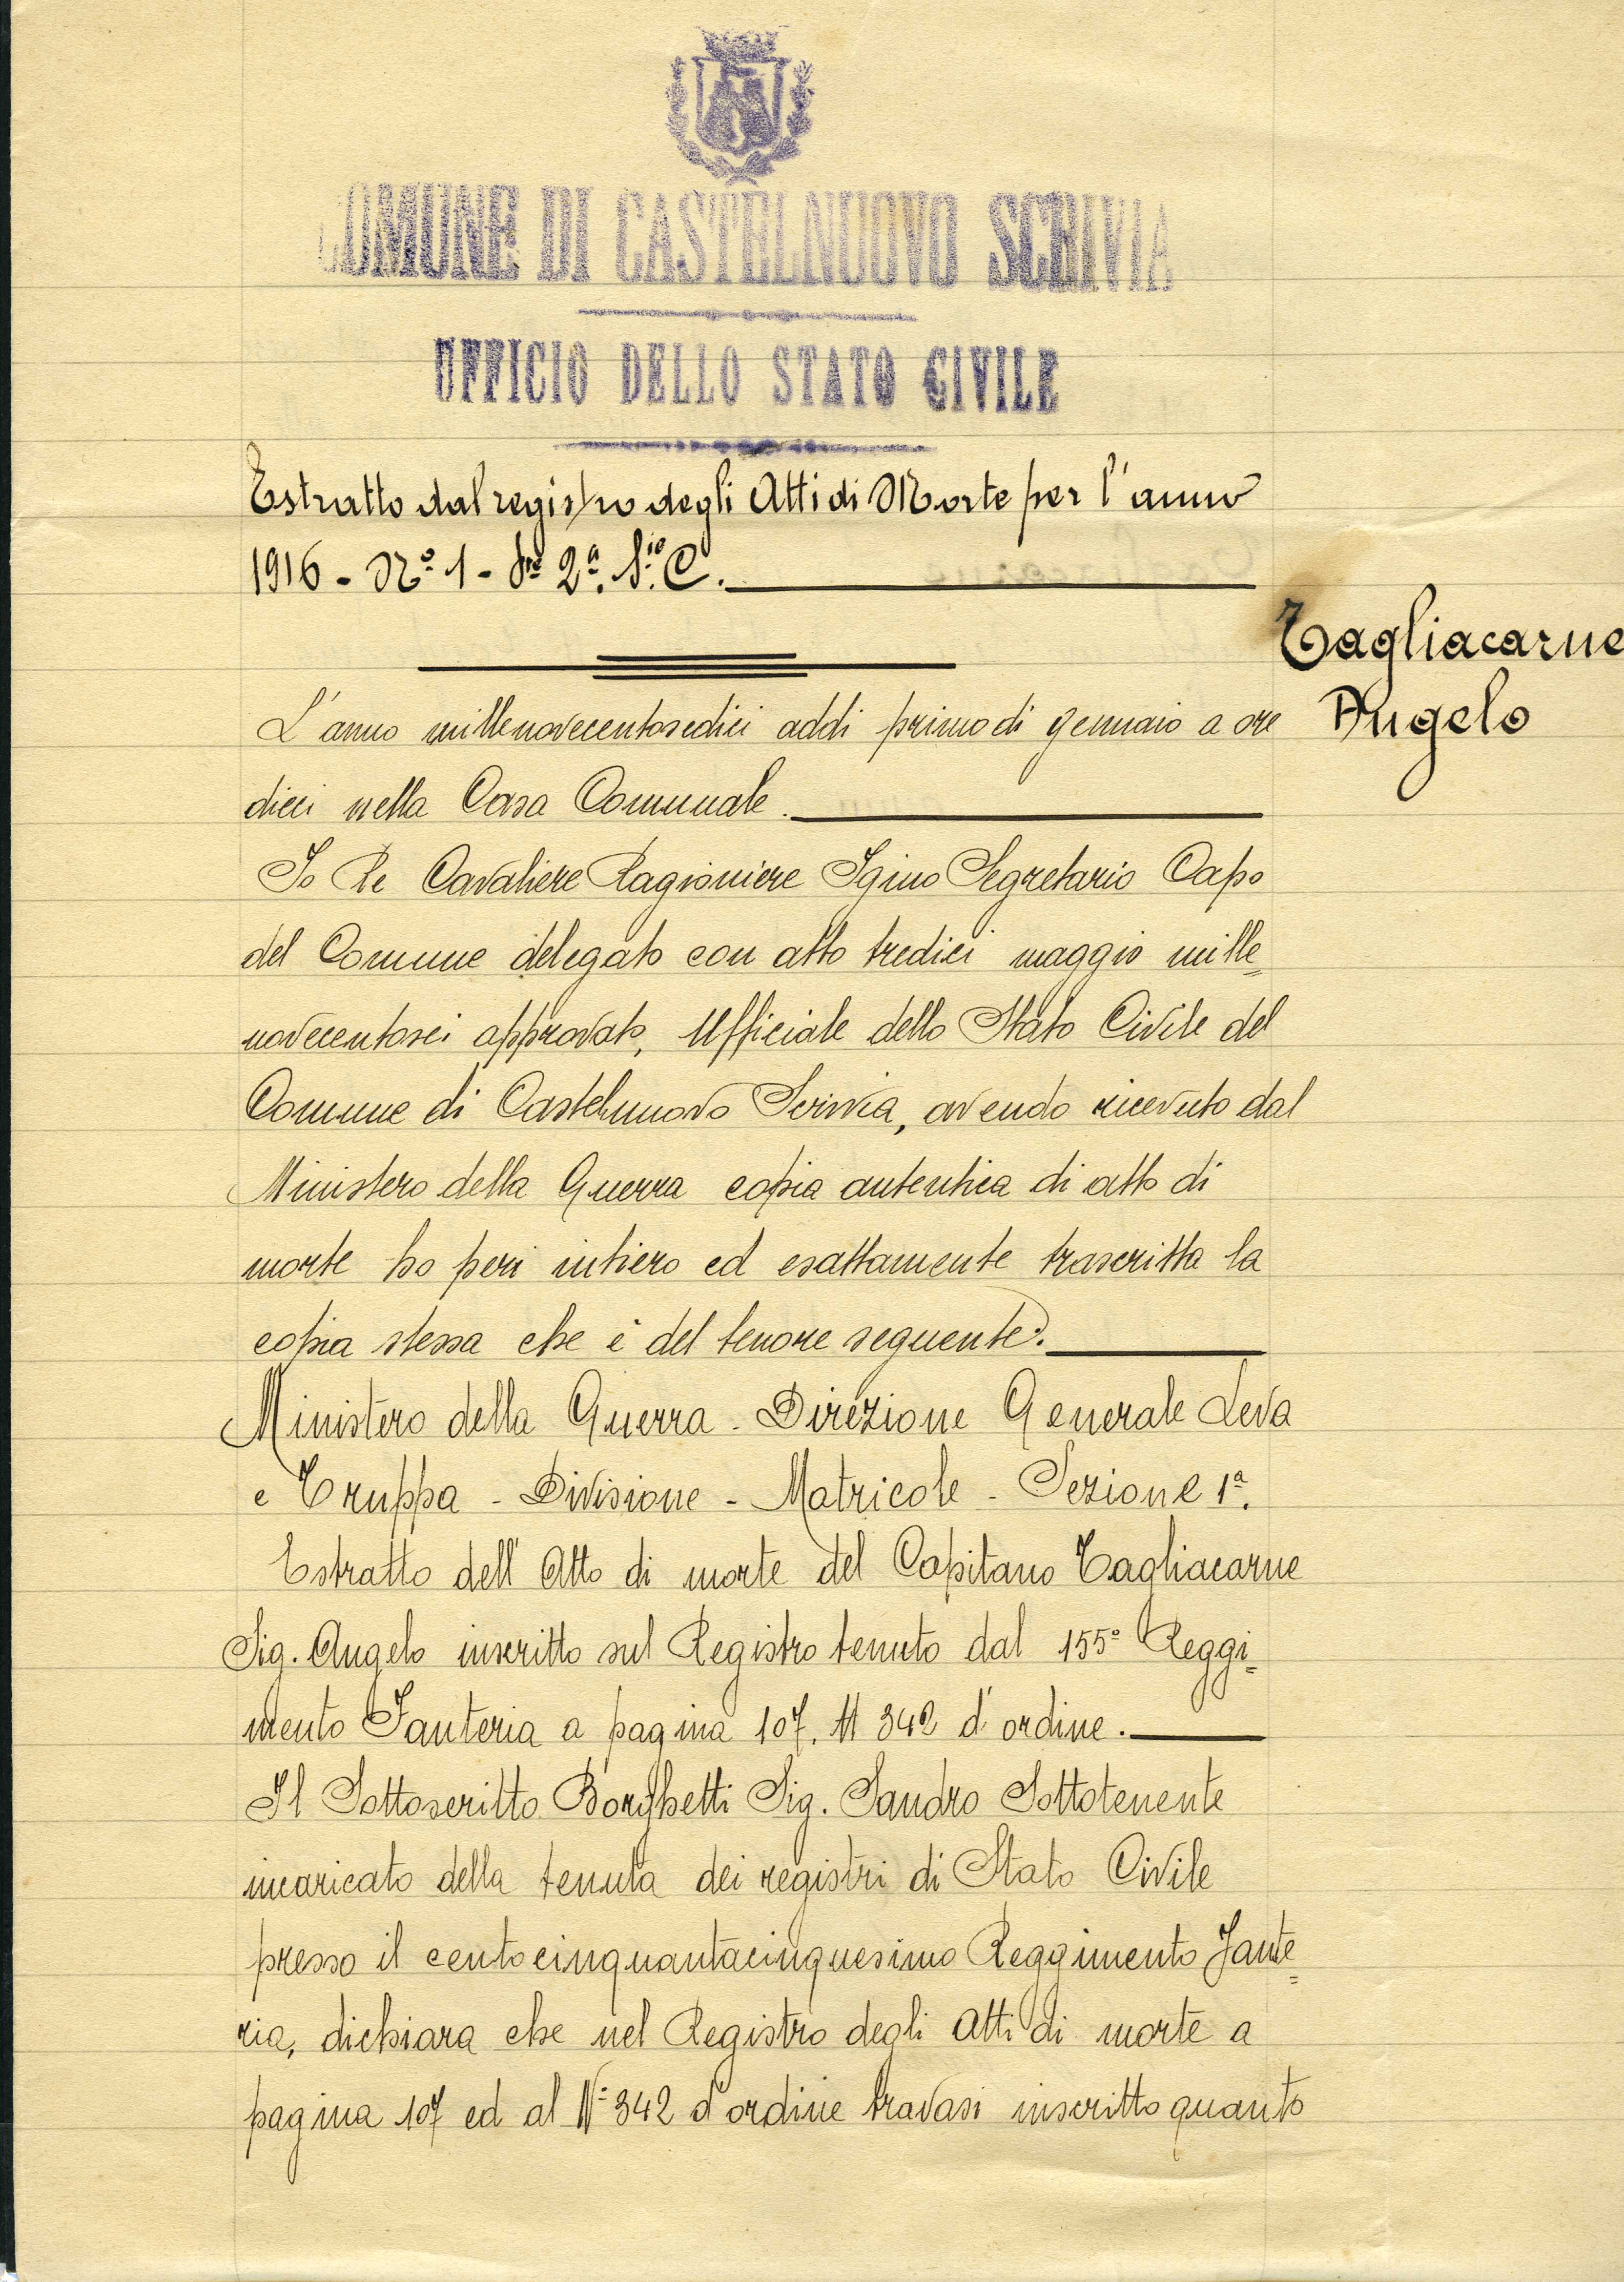 COMUNE DI CASTELNUOVO SCRIVIA
UFFICIO DELLO STATO CIVILE
Estratto dal registro degli Atti di Morte per l'anno
1916 - N.º 1 - Pte 2ª. S.ie C.
Tagliacarne
Angelo
L'anno millenovecentosedici addi primo di gennaio a ore
dieci nella Casa Comunale.
Io Re Cavaliere Ragioniere Igino Segretario Capo
del Comune delegato con atto tredici maggio mille=
novecentosei approvato, Ufficiale dello Stato Civile del
Comune di Castelnuovo Scrivia, avendo ricevuto dal
Ministero della Guerra copia autentica di atto di
morte ho peri intiero ed esattamente trascritta la
copia stessa che è del tenore seguente:
Ministero della Guerra - Direzione Generale Leva
e Truppa - Divisione - Matricole - Sezione 1ª.
Estratto dell'Atto di morte del Capitano Tagliacarne
Sig. Angelo inscritto sul Registro tenuto dal 155º Reggi=
mento Fanteria a pagina 107. N 342 d'ordine.
Il Sottoscritto Borghetti Sig. Sandro Sottotenente
incaricato della tenuta dei registri di Stato Civile
presso il centocinquantacinquesimo Reggimento Fante=
ria, dichiara che nel Registro degli Atti di morte a
pagina 107 ed al Nº 342 d'ordine travasi inscritto quanto